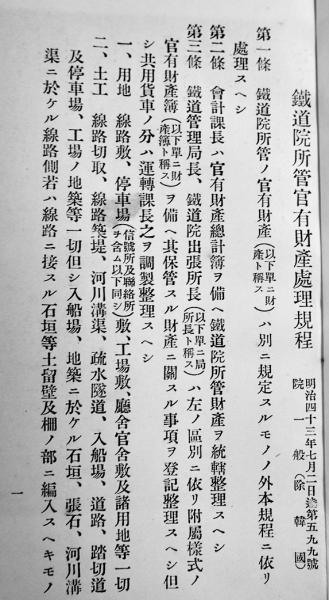 鐵道院所管官有財產處理規程
明治四十三年七月二日達第五九九號
院一般(除韓國)
第一條　鐵道院所管ノ官有財產(以下單ニ財產ト稱ス)ハ別ニ規定スルモノノ外本規程ニ依リ
處理スヘシ
第二條　會計課長ハ官有財產總計簿ヲ備ヘ鐵道院所管財產ヲ統轄整理スヘシ
第三條　鐵道管理局長、鐵道院出張所長(以下單ニ局所長ト稱ス)ハ左ノ區別ニ依リ附屬樣式ノ
官有財產簿(以下單ニ財產簿ト稱ス)ヲ備ヘ其保管スル財產ニ關スル事項ヲ登記整理スヘシ但
シ共用貨車ノ分ハ運轉課長之ヲ調製整理スヘシ
一、用地　線路敷、停車場(信號所及聯絡所ヲ含ム以下同シ)敷、工場敷、廳舍官舍敷及諸用地等一切
二、土工　線路切取、線路築堤、河川溝渠、疏水隧道、入船場、道路、踏切道
及停車場、工場ノ地築等一切但シ入船場、地築ニ於ケル石垣、張石、河川溝
渠ニ於ケル線路側若ハ線路ニ接スル石垣等土留壁及柵ノ部ニ編入スヘキモノ
一